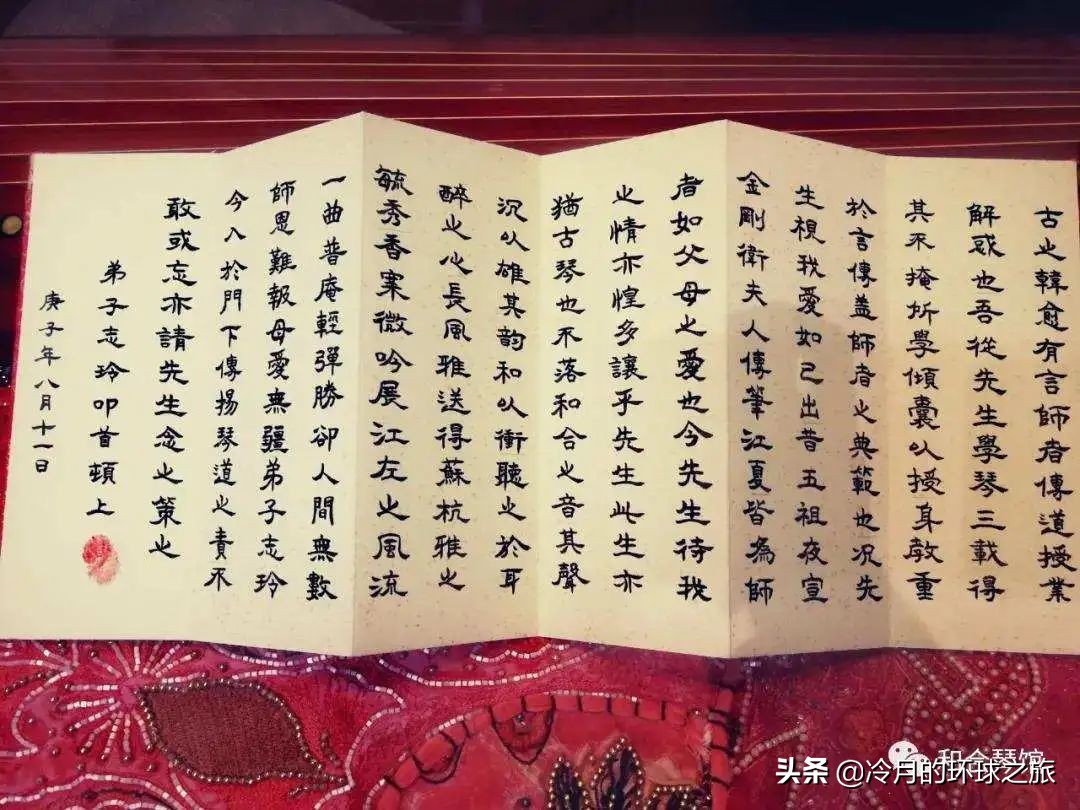 古之韓愈有言師者傳道授業
解惑也吾從先生學琴三載得
其不掩所學傾囊以授身教重
於言傳盖師者之典範也况先
生視我愛如己出昔五祖夜宣
金剛衛夫人傳筆江夏皆為師
者如父母之愛也今先生待我
之情亦惶多讓乎先生此生亦
猶古琴也不落和合之音其聲
沉以雄其韵和以衝聽之於耳
醉之心長風雅送得蘇杭雅之
毓秀香案微吟展江左之風流
一曲普庵輕彈勝卻人間無數
師恩難報母愛無疆弟子志玲
今入於門下傳揚琴道之責不
敢或忘亦請先生念之策之
弟子志玲叩首頓上
庚子年八月十一日
和合琴馆
头条 @冷月的环球之旅